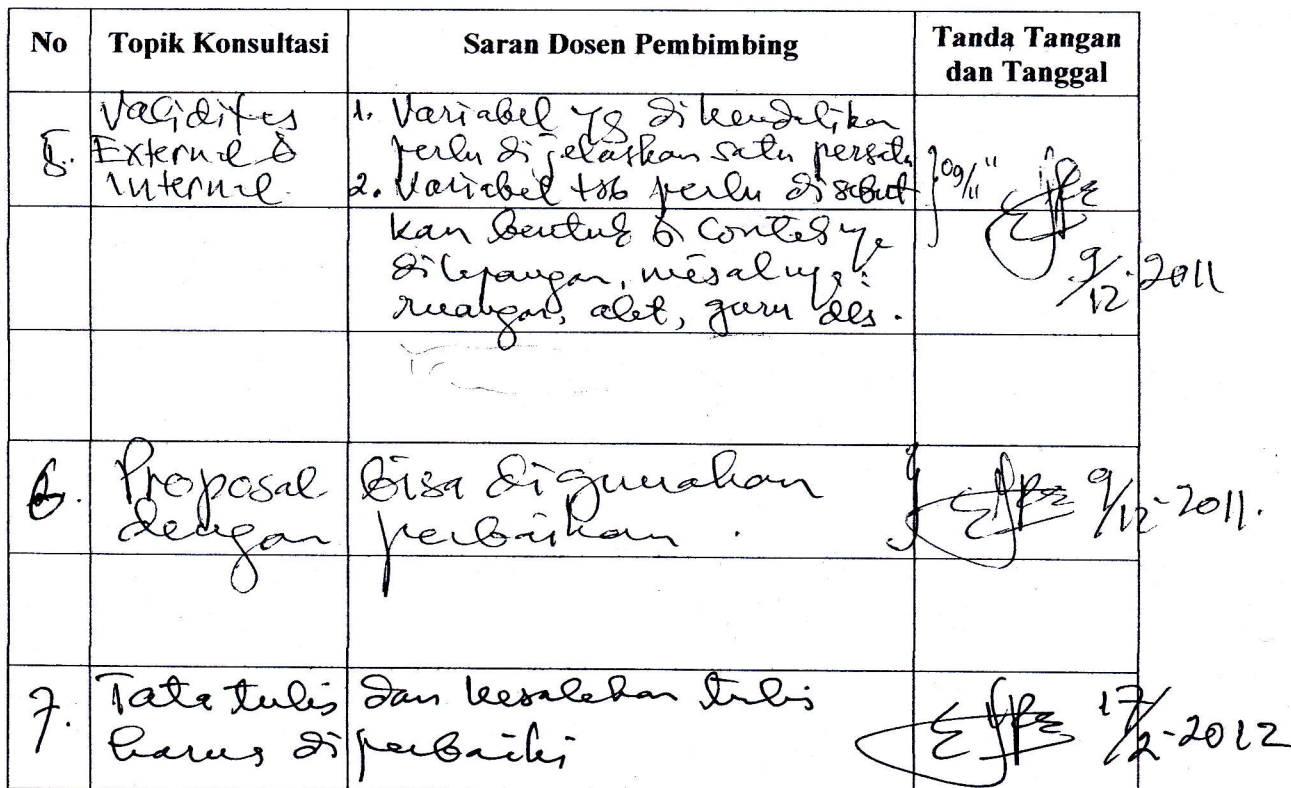 No Topik Konsultasi Saran Dosen Pembimbing Tanda Tangan
dan Tanggal
5. Validitas
External &
Internal.
1. Variabel yg dikendalikan
perlu dijelaskan satu persatu
2. Variabel tsb perlu disebut
kan bentuk & contohnya
dilapangan, misalnya:
ruangan, alat, guru dls.
09/11 "
9/12-2011
6. Proposal bisa digunakan
dengan perbaikan.
9/12-2011.
7. Tata tulis dan kesalahan tulis
harus diperbaiki
17/2-2012